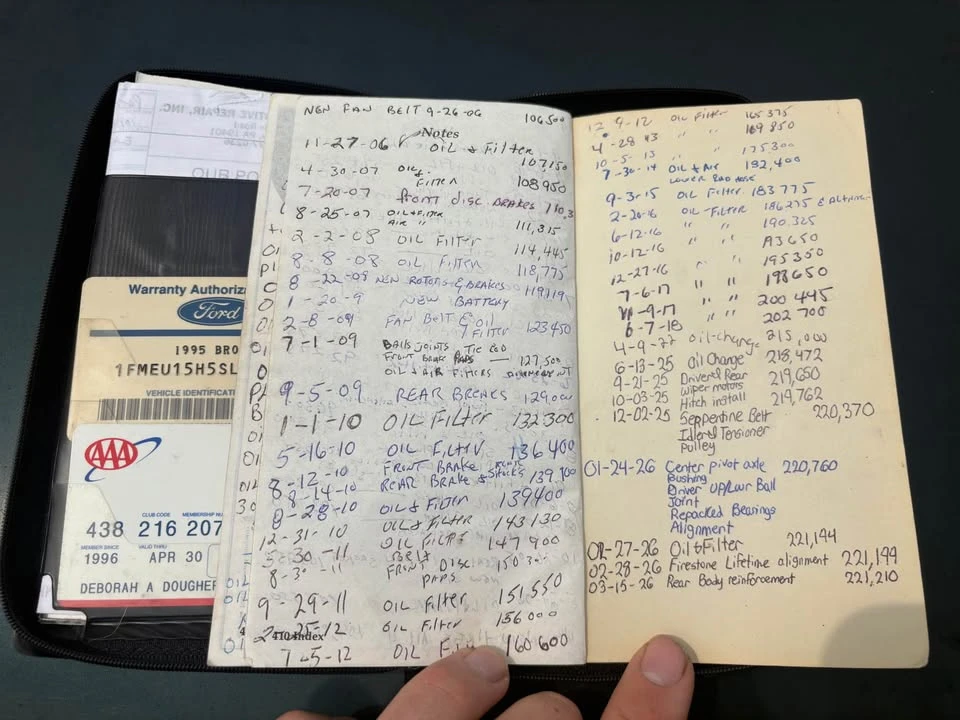 TIVE REPAIR, INC.
Warranty Authoriza
Ford
1995 BRO
1FMEU15H5SL
VEHICLE IDENTIFICAT
AAA
CLUB CODE MEMBERSHIP NUMB
438 216 207
MEMBER SINCE VALID THRU
1996 APR 30
DEBORAH A DOUGHER
NEW FAN BELT 9-26-06 106500
Notes
11-27-06 OIL & Filter 107,150
4-30-07 OIL & Filter 108950
7-20-07 front DISC BRAKES 110,3
8-25-07 OIL & Filter AIR " 111,315
2-2-08 OIL FILTER 114,445
8-8-08 OIL FILTER 118,775
8-22-08 NEW ROTORS & BRAKES 119119
1-20-9 NEW BATTERY
2-8-09 FAN BELT & OIL FILTER 123450
7-1-09 BALLS JOINTS TIE ROD
FRONT BRAKE PADS — 127,500
OIL & AIR FILTERS ALIGNMENT
9-5-09 REAR BREAKS 129000
1-1-10 OIL FILTER 132300
5-16-10 OIL FILTER 136400
8-12-10 FRONT BRAKE
8-14-10 REAR BRAKE & Shocks 139,100
8-28-10 OIL & FILTER 139400
12-31-10 OIL & FILTER 143130
5-30-11 OIL FILTER 147900
BELT
8-3 -11 FRONT DISC PADS
9-29-11 OIL Filter 151550
2-25-12 OIL Filter 156000
410 Index
7-5-12 OIL 160600
12 9-12 OIL Filter 165375
4-28 13 " " 169850
10-5-13 " " 175300
7-30-14 OIL & AIR 182,400
LOWER RAD HOSE
9-3-15 OIL Filter 183775
2-20-16 OIL-FILTER 186275
6-12-16 " " 190.325
10-12-16 " " 193650
12-27-16 " " 195350
7-6-17 " " 198650
11-9-17 " " 200445
6-7-18 " " 202700
4-9-22 oil-change 215,000
6-13-25 Oil Change 218,472
9-21-25 Driver & Rear wiper motors 219,650
10-03-25 Hitch install 219,762
12-02-25 Serpentine Belt 220,370
Idler & Tensioner
Pulley
01-24-26 Center pivot axle 220,760
Bushing
Driver UP/Lwr Ball
Joint
Repacked Bearings
Alignment
02-27-26 Oil & Filter 221,194
02-28-26 Firestone Lifetime alignment 221,199
03-15-26 Rear Body reinforcement 221,210